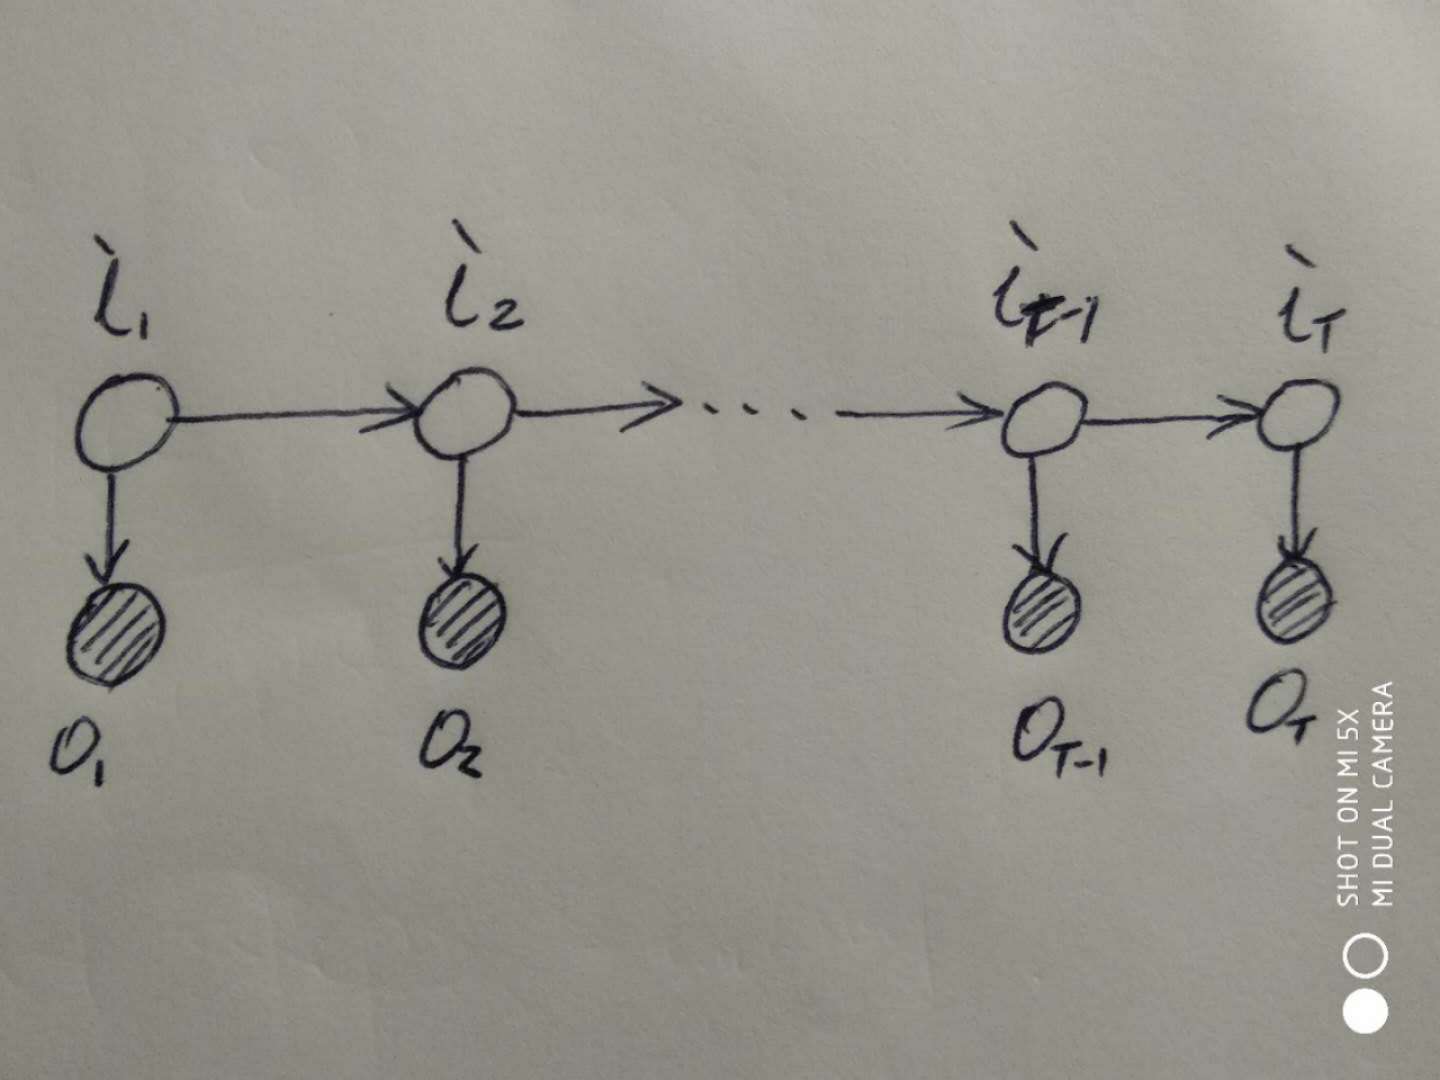 i₁ i₂ i_T-1 i_T
...
O₁ O₂ O_T-1 O_T
SHOT ON MI 5X
MI DUAL CAMERA